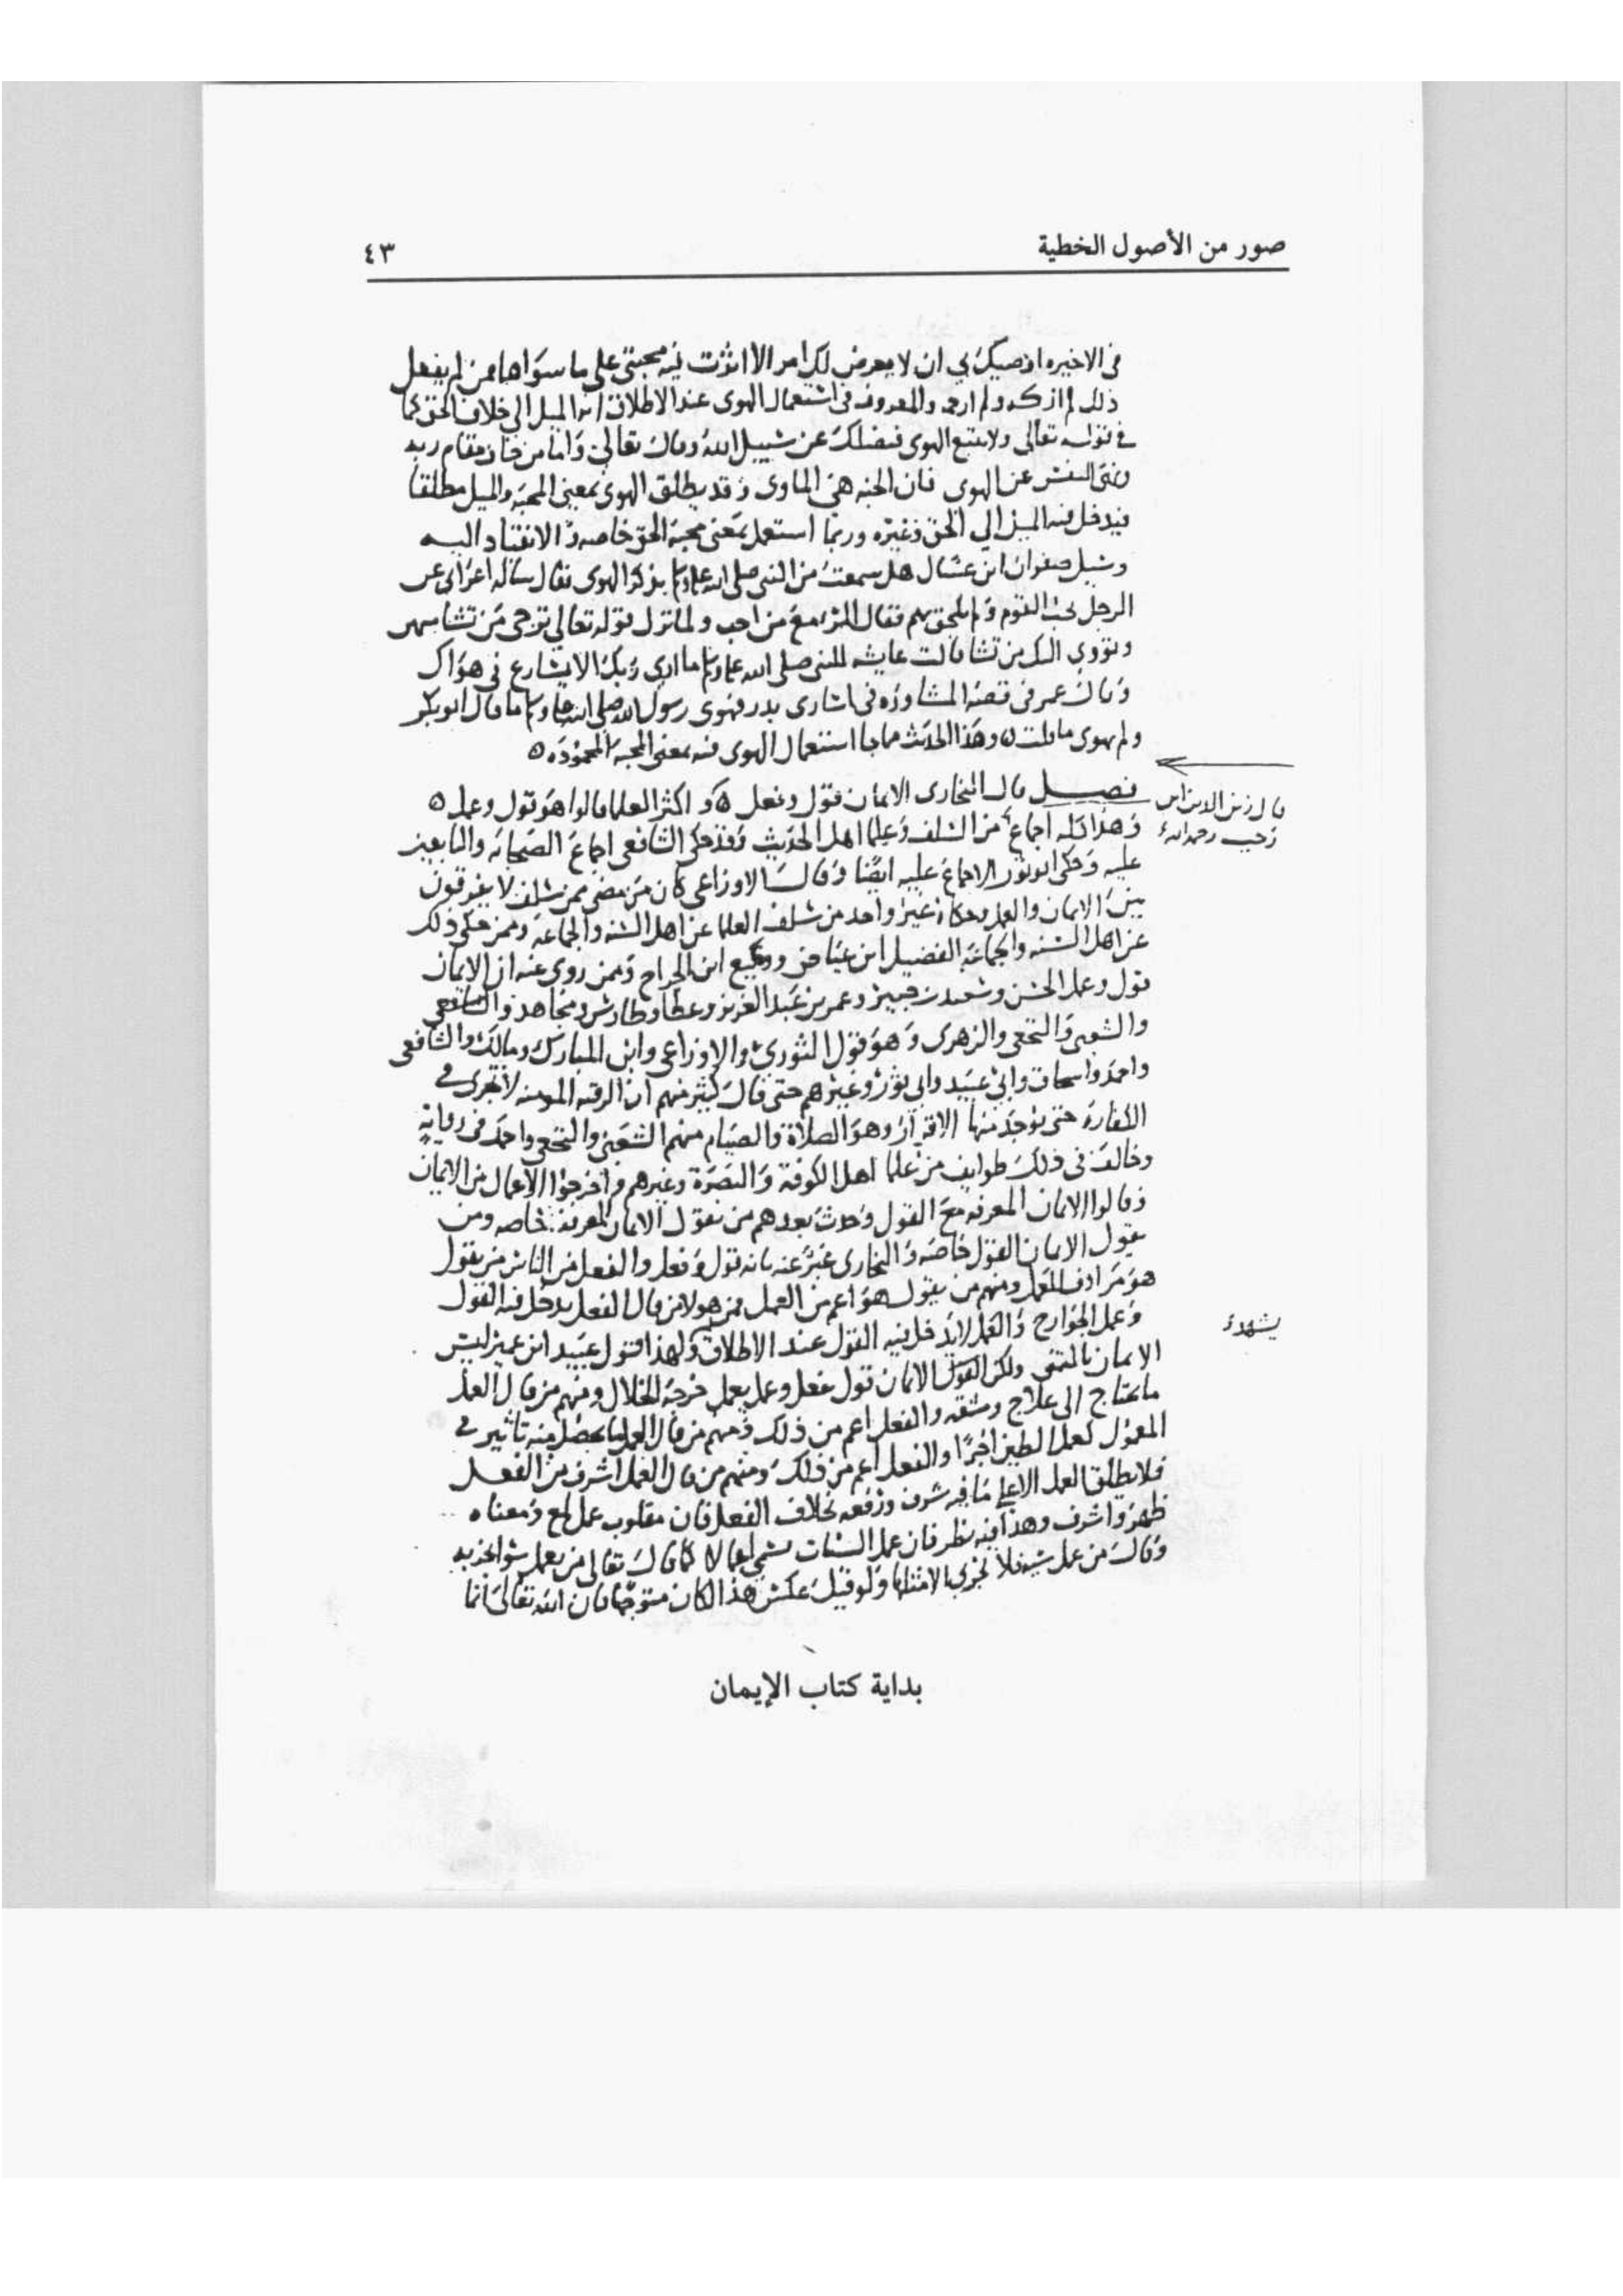 صور من الأصول الخطية
٤٣
في الاخيره اوصيك بي ان لا يعرض لك امر الا اثرت فيه محبتي على ما سواها فمن لم يفعل
ذلك لم ازكه ولم ارحمه والمعروف في استعمال الهوى عند الاطلاق انه الميل الي خلاف الحق كما
في قوله تعالى ولا تتبع الهوى فيضلك عن سبيل الله وقال تعالى واما من خاف مقام ربه
ونهى النفس عن الهوى فان الجنه هي الماوى وقد يطلق الهوى بمعنى المحبه والميل مطلقا
فيدخل فيه الميل الي الحق وغيره وربما استعمل بمعنى محبة الحق خاصه والانقياد اليه
وسيل صفوان ابن عسال هل سمعت من النبي صلى الله عليه وسلم يذكر الهوى فقال ساله اعرابي عن
الرجل يحب القوم ولم يلحق بهم فقال المرء مع من احب ولما نزل قوله تعالي ترجى من تشا منهن
وتؤوي اليك من تشا قالت عايشه للنبي صلى الله عليه وسلم ما ارى ربك الا يسارع في هواك
وقال عمر في قصة المشاوره في اسارى بدر فهوى رسول الله صلى الله عليه وسلم ما قال ابو بكر
ولم يهوى ما قلت ه وهذا الحديث مما جا استعمال الهوى فيه بمعنى المحبه المحموده ه
قال زين الدين ابن
رجب رحمه الله
فصل قال البخارى الايمان قول وفعل ه و اكثر العلما قالوا هو قول وعمل ه
وهذا كله اجماع من السلف وعلما اهل الحديث وقد حكى الشافعي اجماع الصحابه والتابعين
عليه وحكى ابو ثور الاجماع عليه ايضا وقال الاوزاعي كان من مضى ممن سلف لا يفرقون
بين الايمان والعمل وحكاه غير واحد من سلف العلما عن اهل السنه والجماعه وممن حكى ذلك
عن اهل السنه والجماعه الفضيل ابن عياض ووكيع ابن الجراح وممن روى عنه ان الايمان
قول وعمل الحسن وسعيد بن جبير وعمر بن عبد العزيز وعطا وطاوس ومجاهد
والشعبي والنخعي والزهرى وهو قول الثوري والاوزاعي وابن المبارك ومالك والشافعي
واحمد واسحاق وابي عبيد وابي ثور وغيرهم حتى قال كثير منهم ان الرقبه المومنه لا تجزى في
الكفارة حتى يوجد منها الاقرار وهو الصلاة والصيام منهم الشعبي والنخعي واحمد في رواية
وخالف في ذلك طوايف من علما اهل الكوفة والبصرة وغيرهم واخرجوا الاعمال من الايمان
وقالوا الايمان المعرفه مع القول وحدث بعدهم من يقول الايمان المعرفة خاصه ومن
يقول الايمان القول خاصه و البخارى عبر عنه بانه قول وفعل والفعل من الناس من يقول
هو مرادف للعمل ومنهم من يقول هو اعم من العمل فمن هولا من قال الفعل يدخل فيه القول
وعمل الجوارح والعمل لا يدخل فيه القول عند الاطلاق ولهذا قول عبيد ابن عمير ليس
يشهد
الايمان بالتمني ولكن الايمان قول يفعل وعمل يعمل خرجه الخلال ومنهم من قال العمل
ما يحتاج الى علاج ومشقه والفعل اعم من ذلك ومنهم من قال العمل ما يحصل منه تاثير في
المعمول كعمل الطين اجرًا والفعل اعم من ذلك ومنهم من قال العمل اشرف من الفعل
فلا يطلق العمل الا على ما فيه شرف ورفعه بخلاف الفعل فان مقلوب عمل لمع ومعناه
ظهر واشرف وهذا فيه نظر فان عمل السيات يسمى اعمالا كما قال تعالى من يعمل سوا يجز به
وقال من عمل سيئه فلا يجزى الا مثلها ولو قيل عكس هذا لكان متوجها فان الله تعالى انما
بداية كتاب الإيمان